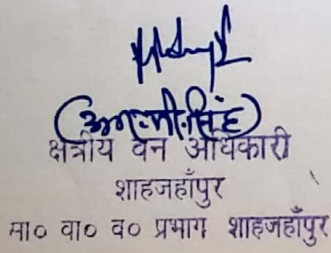 (आर.पी.सिंह)
क्षेत्रीय वन अधिकारी
शाहजहाँपुर
मा० वा० व० प्रभाग शाहजहाँपुर